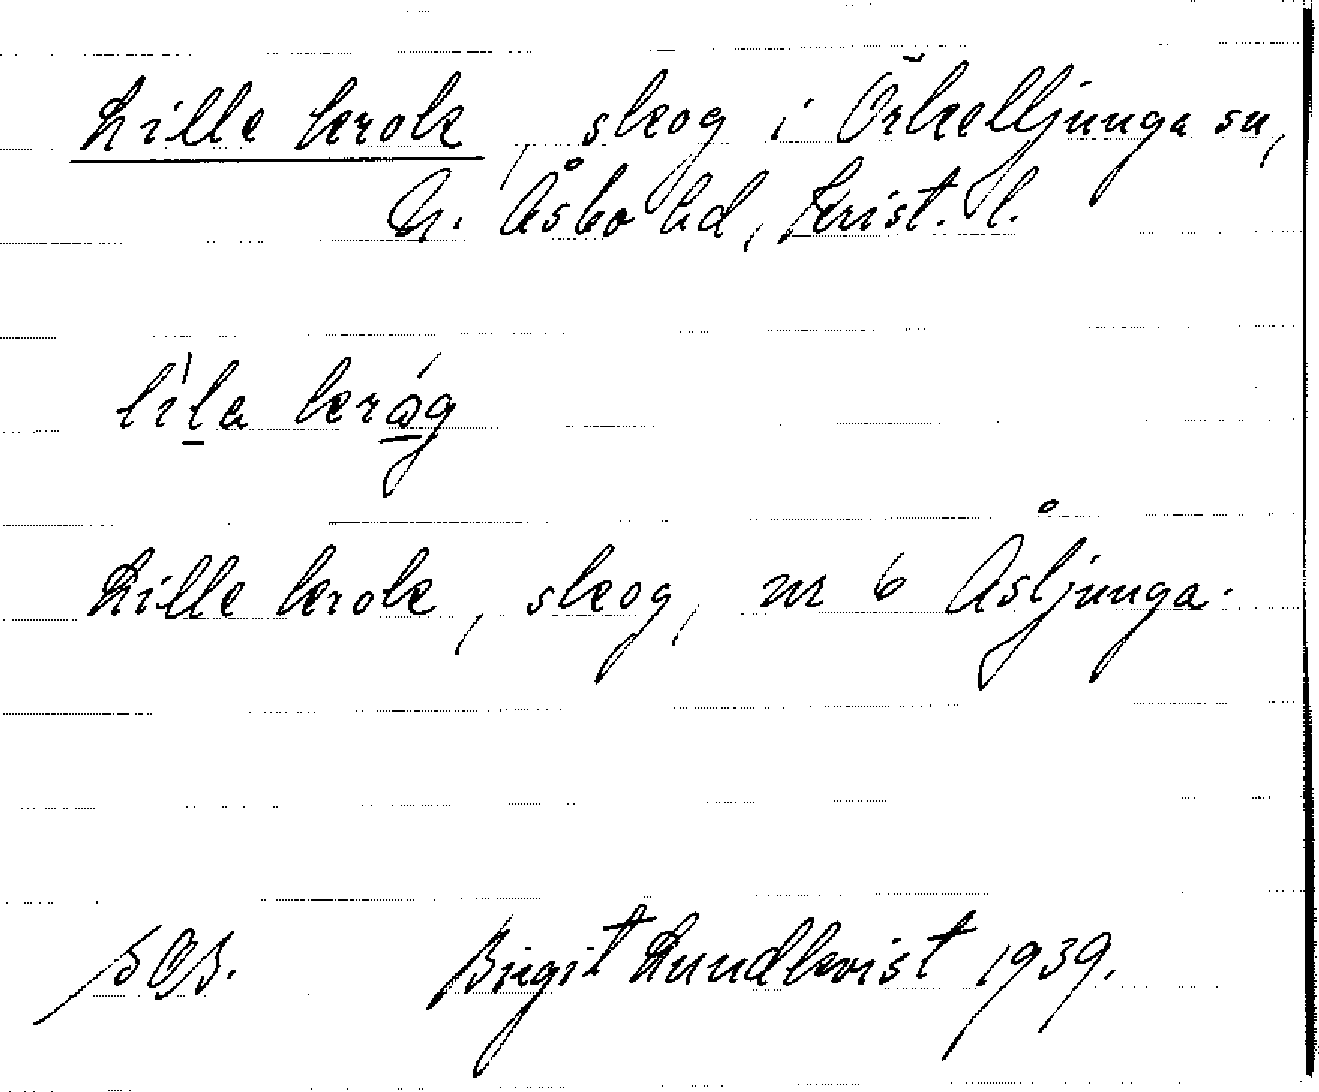 Lille krok, skog i Örkelljunga sn,
N. Åsbo hd, Krist. l.
lila kråg
Lille krok, skog, nr 6 Åsljunga.
SOB. Birgit Lundkvist 1939.